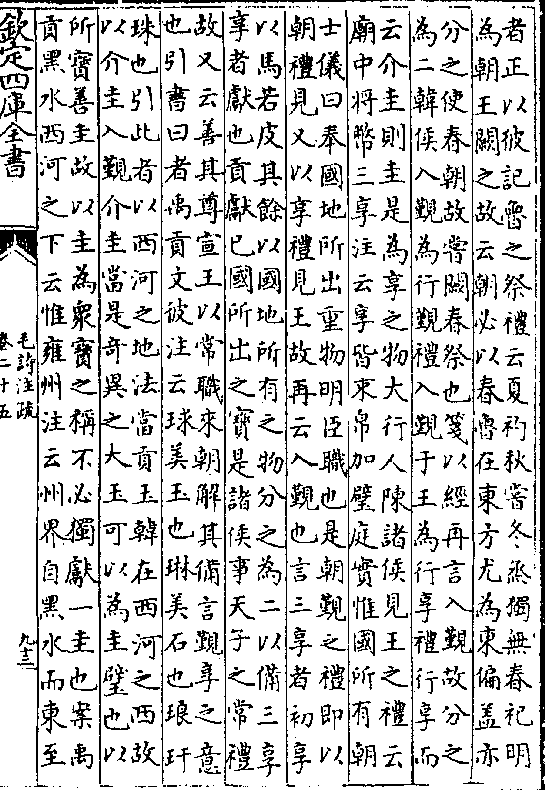 者正以彼記魯之祭禮云夏礿秋嘗冬烝獨無春祀明
為朝王闕之故云朝必以春魯在東方尤為東偏蓋亦
分之使春朝故嘗闕春祭也箋以經再言入覲故分之
為二韓侯入覲為行覲禮入覲于王為行享禮行享而
云介圭則圭是為享之物大行人陳諸侯見王之禮云
廟中將幣三享注云享皆束帛加璧庭實惟國所有朝
士儀曰奉國地所出重物明臣職也是朝覲之禮即以
朝禮見又以享禮見王故再云入覲也言三享者初享
以馬若皮其餘以國地所有之物分之為二以備三享
享者獻也貢獻已國所出之寶是諸侯事天子之常禮
故又云善其尊宣王以常職來朝解其備言覲享之意
也引書曰者禹貢文彼注云球美玉也琳美石也琅玕
珠也引此者以西河之地法當貢玉韓在西河之西故
以介圭入覲介圭當是奇異之大玉可以為圭璧也以
所寶善圭故以圭為衆寶之稱不必獨獻一圭也案禹
貢黑水西河之下云惟雍州注云州界自黑水而東至
欽定四庫全書
毛詩注疏
卷二十五
九十三